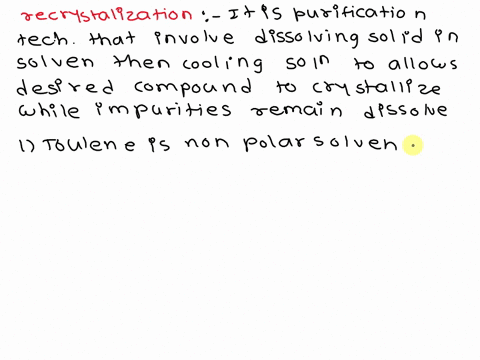 recrystalization :- It is purification
tech. that involve dissolving solid in
solven then cooling soln to allows
desired compound to crystallize
while impurities remain dissolve
1) Toulene is non polar solven